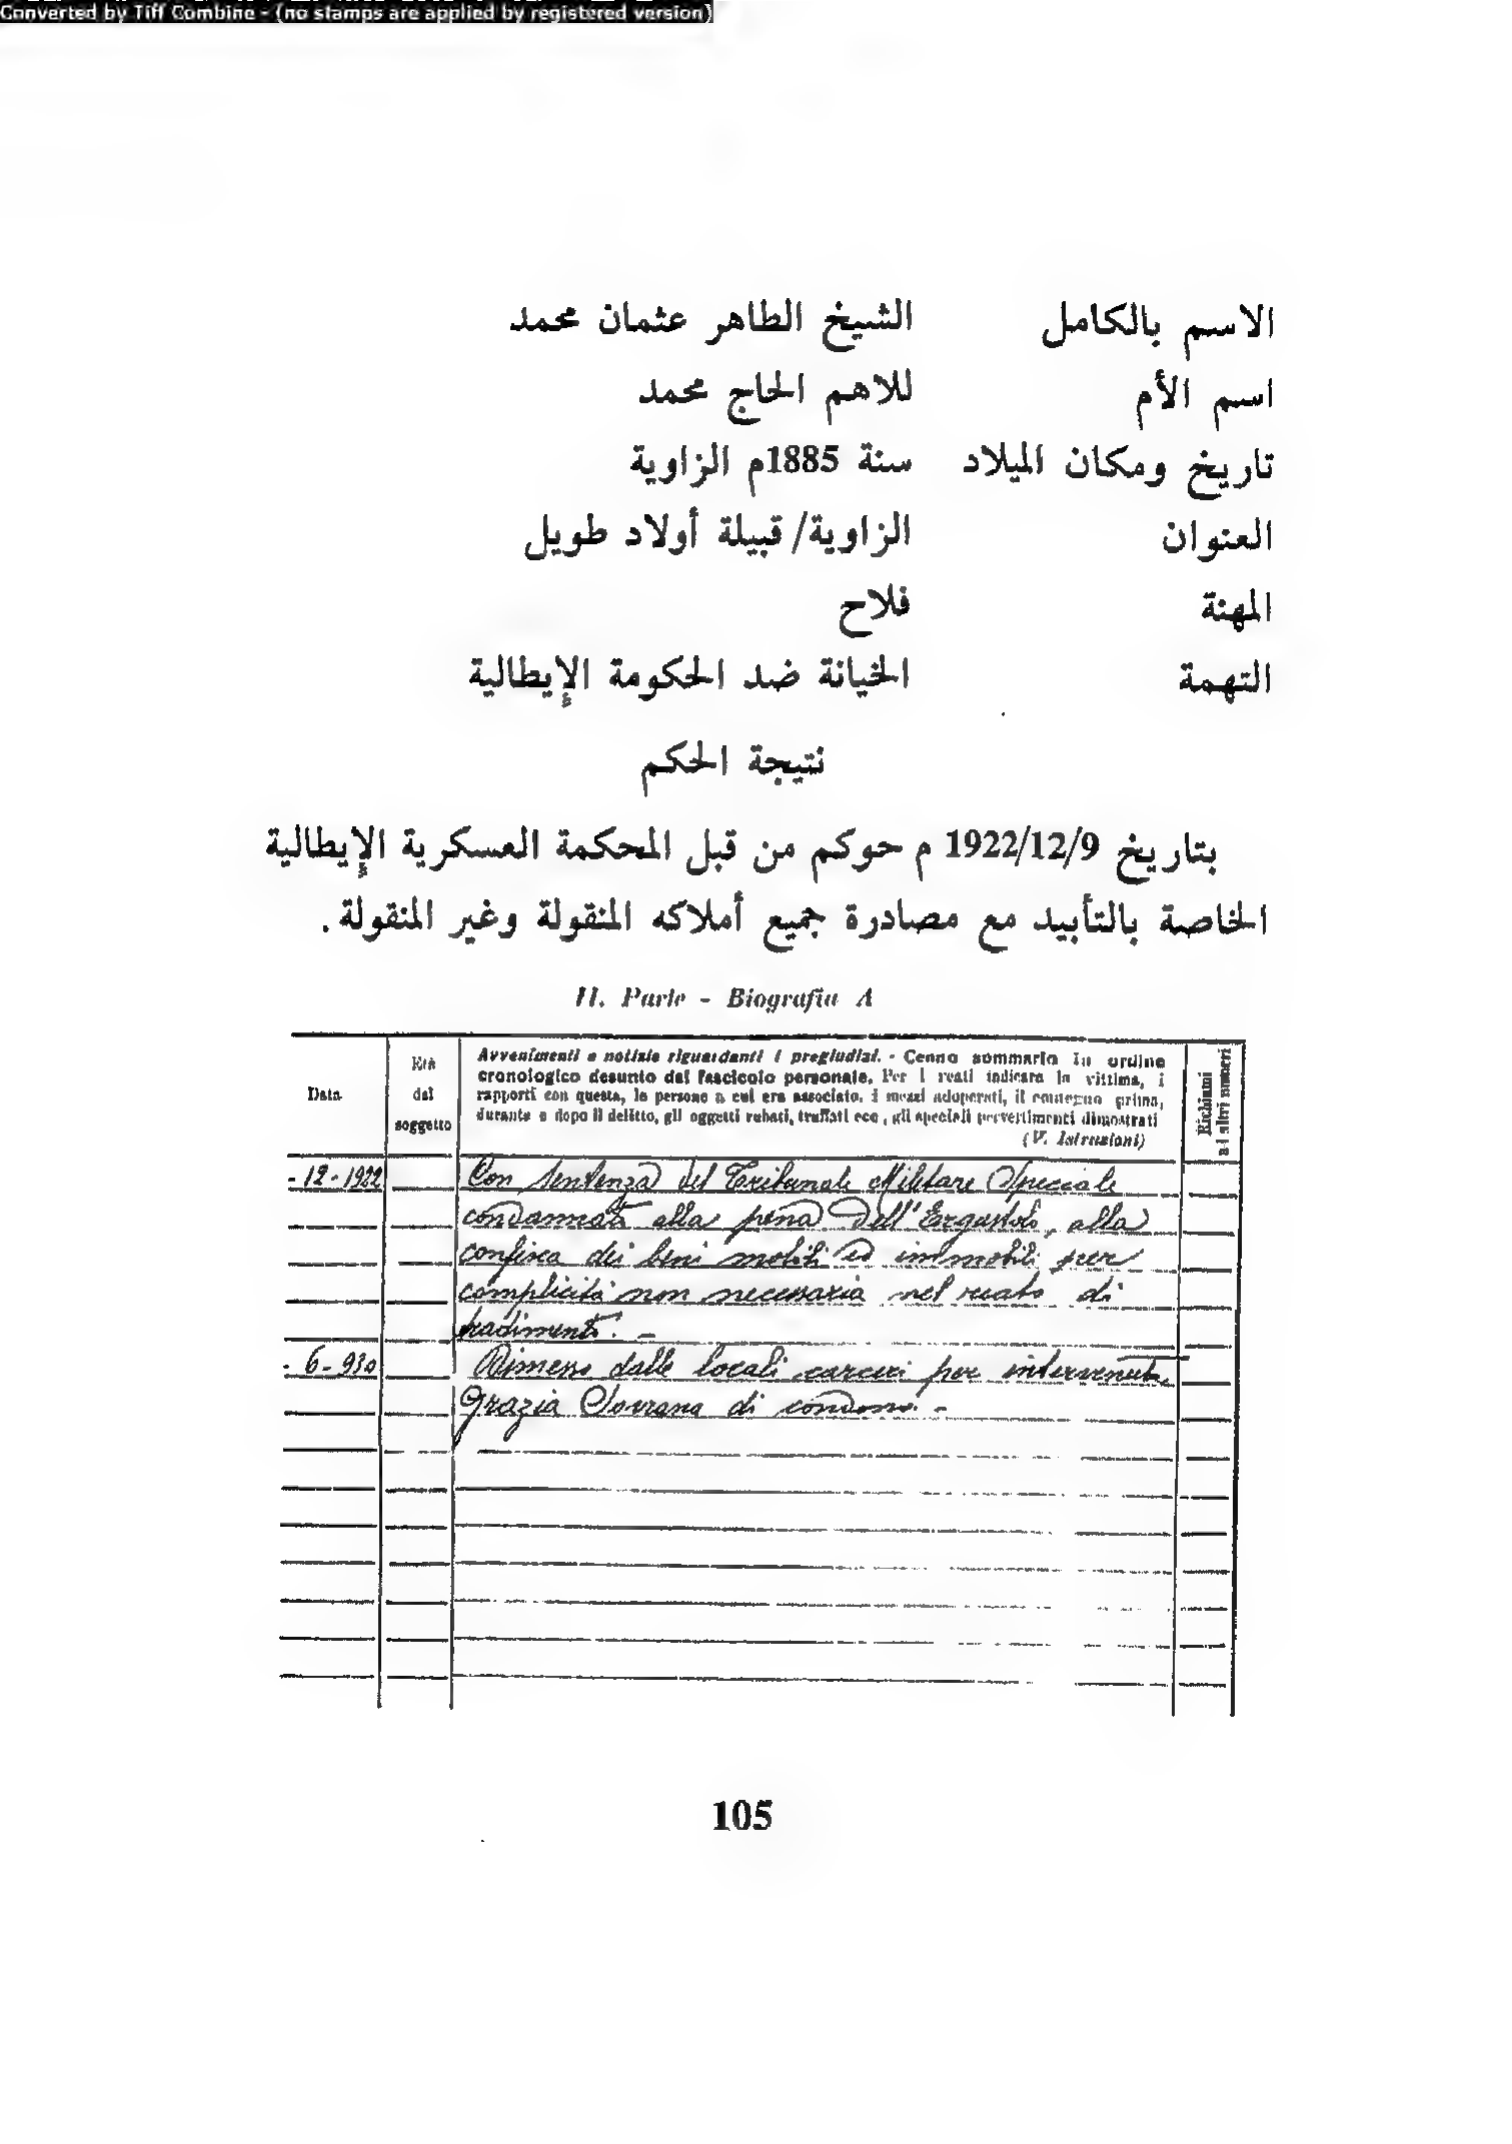 Converted by Tiff Combine - (no stamps are applied by registered version)
الاسم بالكامل الشيخ الطاهر عثمان محمد
اسم الأم للاهم الحاج محمد
تاريخ ومكان الميلاد سنة 1885م الزاوية
العنوان الزاوية/ قبيلة أولاد طويل
المهنة فلاح
التهمة الخيانة ضد الحكومة الإيطالية
نتيجة الحكم
بتاريخ 1922/12/9 م حوكم من قبل المحكمة العسكرية الإيطالية
الخاصة بالتأبيد مع مصادرة جميع أملاكه المنقولة وغير المنقولة.
II. Parte - Biografia A
Data
Età
del
soggetto
Avvenimenti e notizie riguardanti i pregiudizi. - Cenno sommario in ordine
cronologico desunto dal fascicolo personale. Per i reati indicare la vittima, i
rapporti con questa, le persone a cui era associato, i mezzi adoperati, il contegno prima,
durante e dopo il delitto, gli oggetti rubati, truffati ecc., gli speciali pervertimenti dimostrati
(V. Istruzioni)
Richiami
ad altri numeri
- 12 - 1922 Con sentenza del Tribunale Militare Speciale
condannato alla pena dell'Ergastolo, alla
confisca dei beni mobili ed immobili per
complicità non necessaria nel reato di
tradimento. -
- 6 - 930 Rimesso dalle locali carceri per intervenuta
Grazia Sovrana di condono. -
105